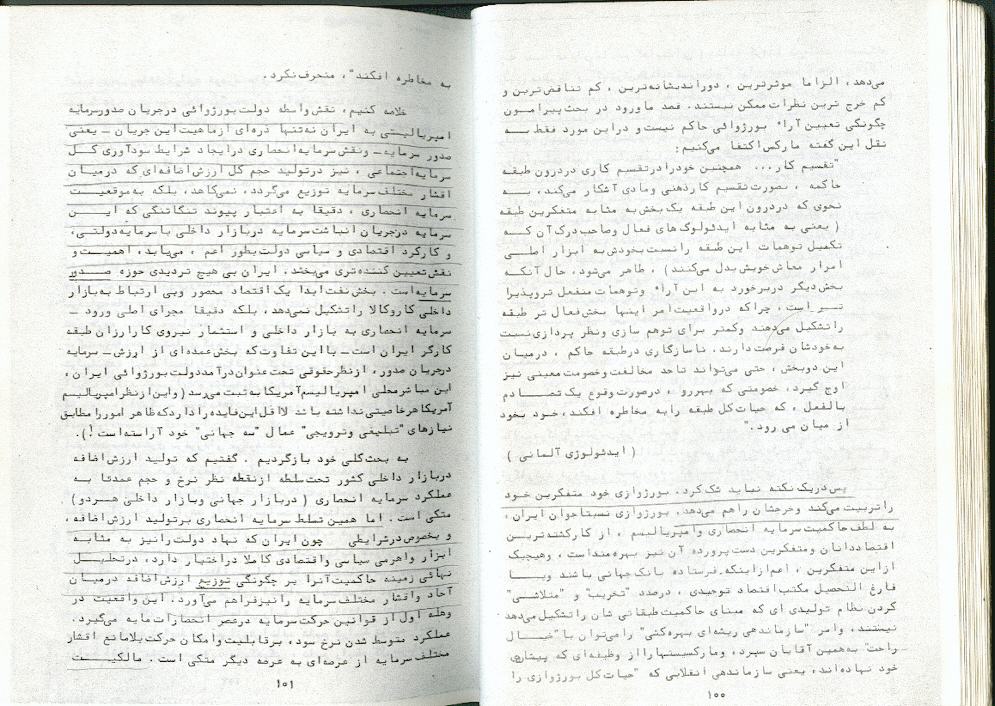 می‌دهد، الزاما موثرترین ، دوراندیشانه‌ترین ، کم تناقض‌ترین و
کم خرج ترین نظرات ممکن نیستند. قصد ما ورود در بحث پیرامون
چگونگی تعیین آراء بورژوائی حاکم نیست و در این مورد فقط به
نقل این گفته مارکس اکتفا می‌کنیم:
"تقسیم کار... همچنین خود را در تقسیم کاری در درون طبقه
حاکمه ، بصورت تقسیم کار ذهنی و مادی آشکار می‌کند، به
نحوی که در درون این طبقه یک بخش به مثابه متفکرین طبقه
( یعنی به مثابه ایدئولوگ‌های فعال و صاحب درک آن که
تکمیل توهمات این طبقه را نسبت بخودش به ابزار اصلی
امرار معاش خویش بدل می‌کنند) ، ظاهر می‌شود، حال آنکه
بخش دیگر در برخورد به این آراء و توهمات منفعل تر و پذیرا
تر است، چرا که در واقعیت امر اینها بخش فعال تر طبقه
را تشکیل می‌دهند و کمتر برای توهم سازی و نظر پردازی نسبت
به خودشان فرصت دارند. ناسازگاری در طبقه حاکم ، در میان
این دو بخش ، حتی می‌تواند تا حد مخالفت و خصومت معینی نیز
اوج گیرد، خصومتی که بهررو ، در صورت وقوع یک تصادم
بالفعل ، که حیات کل طبقه را به مخاطره افکند، خود بخود
از میان می رود."
( ایدئولوژی آلمانی )
پس در یک نکته نباید شک کرد. بورژوازی خود متفکرین خود
را تربیت می‌کند و خرجشان را هم می‌دهد. بورژوازی نسبتا جوان ایران ،
به لطف حاکمیت سرمایه انحصاری و امپریالیسم ، از کارکشته‌ترین
اقتصاددانان و متفکرین دست پرورده آن نیز بهره‌مند است، و هیچیک
از این متفکرین ، اعم از اینکه فرستاده بانک جهانی باشند و یا
فارغ التحصیل مکتب اقتصاد توحیدی ، درصدد "تخریب" و "متلاشی"
کردن نظام تولیدی ای که مبنای حاکمیت طبقاتی شان را تشکیل می‌دهد
نیستند، و امر "سازماندهی ریشه‌ای بهره‌کشی" را می‌توان با "خیال
راحت" به همین آقایان سپرد، و مارکسیستها را از وظیفه‌ای که پیشاروی
خود نهاده‌اند، یعنی سازماندهی انقلابی که "حیات کل بورژوازی را
۱۰۰
به مخاطره افکند"، منحرف نکرد.
خلاصه کنیم، نقش واسطه دولت بورژوائی در جریان صدور سرمایه
امپریالیستی به ایران نه تنها ذره‌ای از ماهیت این جریان - یعنی
صدور سرمایه - و نقش سرمایه انحصاری در ایجاد شرایط سودآوری کل
سرمایه اجتماعی ، نیز در تولید حجم کل ارزش اضافه‌ای که در میان
اقشار مختلف سرمایه توزیع می‌گردد، نمی‌کاهد، بلکه به موقعیت
سرمایه انحصاری ، دقیقا به اعتبار پیوند تنگاتنگی که این
سرمایه در جریان انباشت سرمایه در بازار داخلی با سرمایه دولتی،
و کارکرد اقتصادی و سیاسی دولت بطور اعم ، می‌یابد، اهمیت و
نقش تعیین کننده تری می‌بخشد. ایران بی هیچ تردیدی حوزه صدور
سرمایه است. بخش نفت ابدا یک اقتصاد محصور و بی ارتباط به بازار
داخلی کار و کالا را تشکیل نمی‌دهد، بلکه دقیقا مجرای اصلی ورود -
سرمایه انحصاری به بازار داخلی و استثمار نیروی کار ارزان طبقه
کارگر ایران است - با این تفاوت که بخش عمده‌ای از ارزش - سرمایه
در جریان صدور، از نظر حقوقی تحت عنوان درآمد دولت بورژوائی ایران ،
این مباشر محلی امپریالیسم آمریکا به ثبت می‌رسد (و این از نظر امپریالیسم
آمریکا هر خاصیتی نداشته باشد لااقل این فایده را دارد که ظاهر امور را مطابق
نیازهای "تبلیغی و ترویجی" عمال "سه جهانی" خود آراسته است!).
به بحث کلی خود بازگردیم . گفتیم که تولید ارزش اضافه
در بازار داخلی کشور تحت سلطه از نقطه نظر نرخ و حجم عمدتا به
عملکرد سرمایه انحصاری ( در بازار جهانی و بازار داخلی هر دو)
متکی است. اما همین تسلط سرمایه انحصاری بر تولید ارزش اضافه،
و بخصوص در شرایطی چون ایران که نهاد دولت را نیز به مثابه
ابزار و اهرمی سیاسی و اقتصادی کاملا در اختیار دارد، در تحلیل
نهائی زمینه حاکمیت آنرا بر چگونگی توزیع ارزش اضافه در میان
آحاد و اقشار مختلف سرمایه را نیز فراهم می‌آورد. این واقعیت در
وهله اول از قوانین حرکت سرمایه در عصر انحصارات مایه می‌گیرد.
عملکرد متوسط شدن نرخ سود، بر قابلیت و امکان حرکت بلامانع اقشار
مختلف سرمایه از عرصه‌ای به عرصه دیگر متکی است. مالکیت
۱۰۱